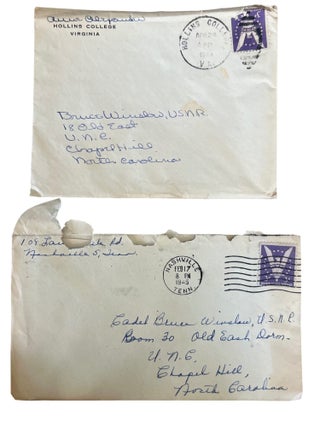 HOLLINS COLLEGE
VIRGINIA
HOLLINS COLLEGE
VA.
Bruce Winslow, U.S.N.R.
18 Old East
U.N.C.
Chapel Hill
North Carolina
Rd.
Nashville 5, Tenn.
NASHVILLE
FEB 17
8 PM
1945
TENN.
Cadet Bruce Winslow, U.S.N.R.
Room 30 Old East Dorm.
U.N.C.
Chapel Hill,
North Carolina